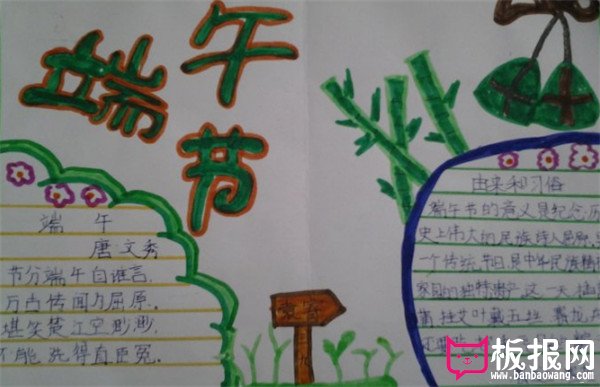 端午节
端 午
唐 文秀
节分端午自谁言,
万古传闻为屈原。
堪笑楚江空渺渺,
不能洗得直臣冤。
由来和习俗
端午节的意义是纪念历
史上伟大的民族诗人屈原
一个传统节日是中华民族
家园的 这一天
挂艾叶戴五丝 赛龙舟
板报网
www.banbaowang.com